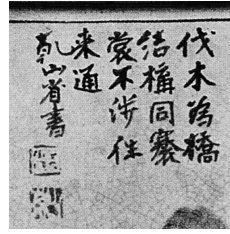 伐木為橋
結構同褰
裳不涉往
来通
乾山省書